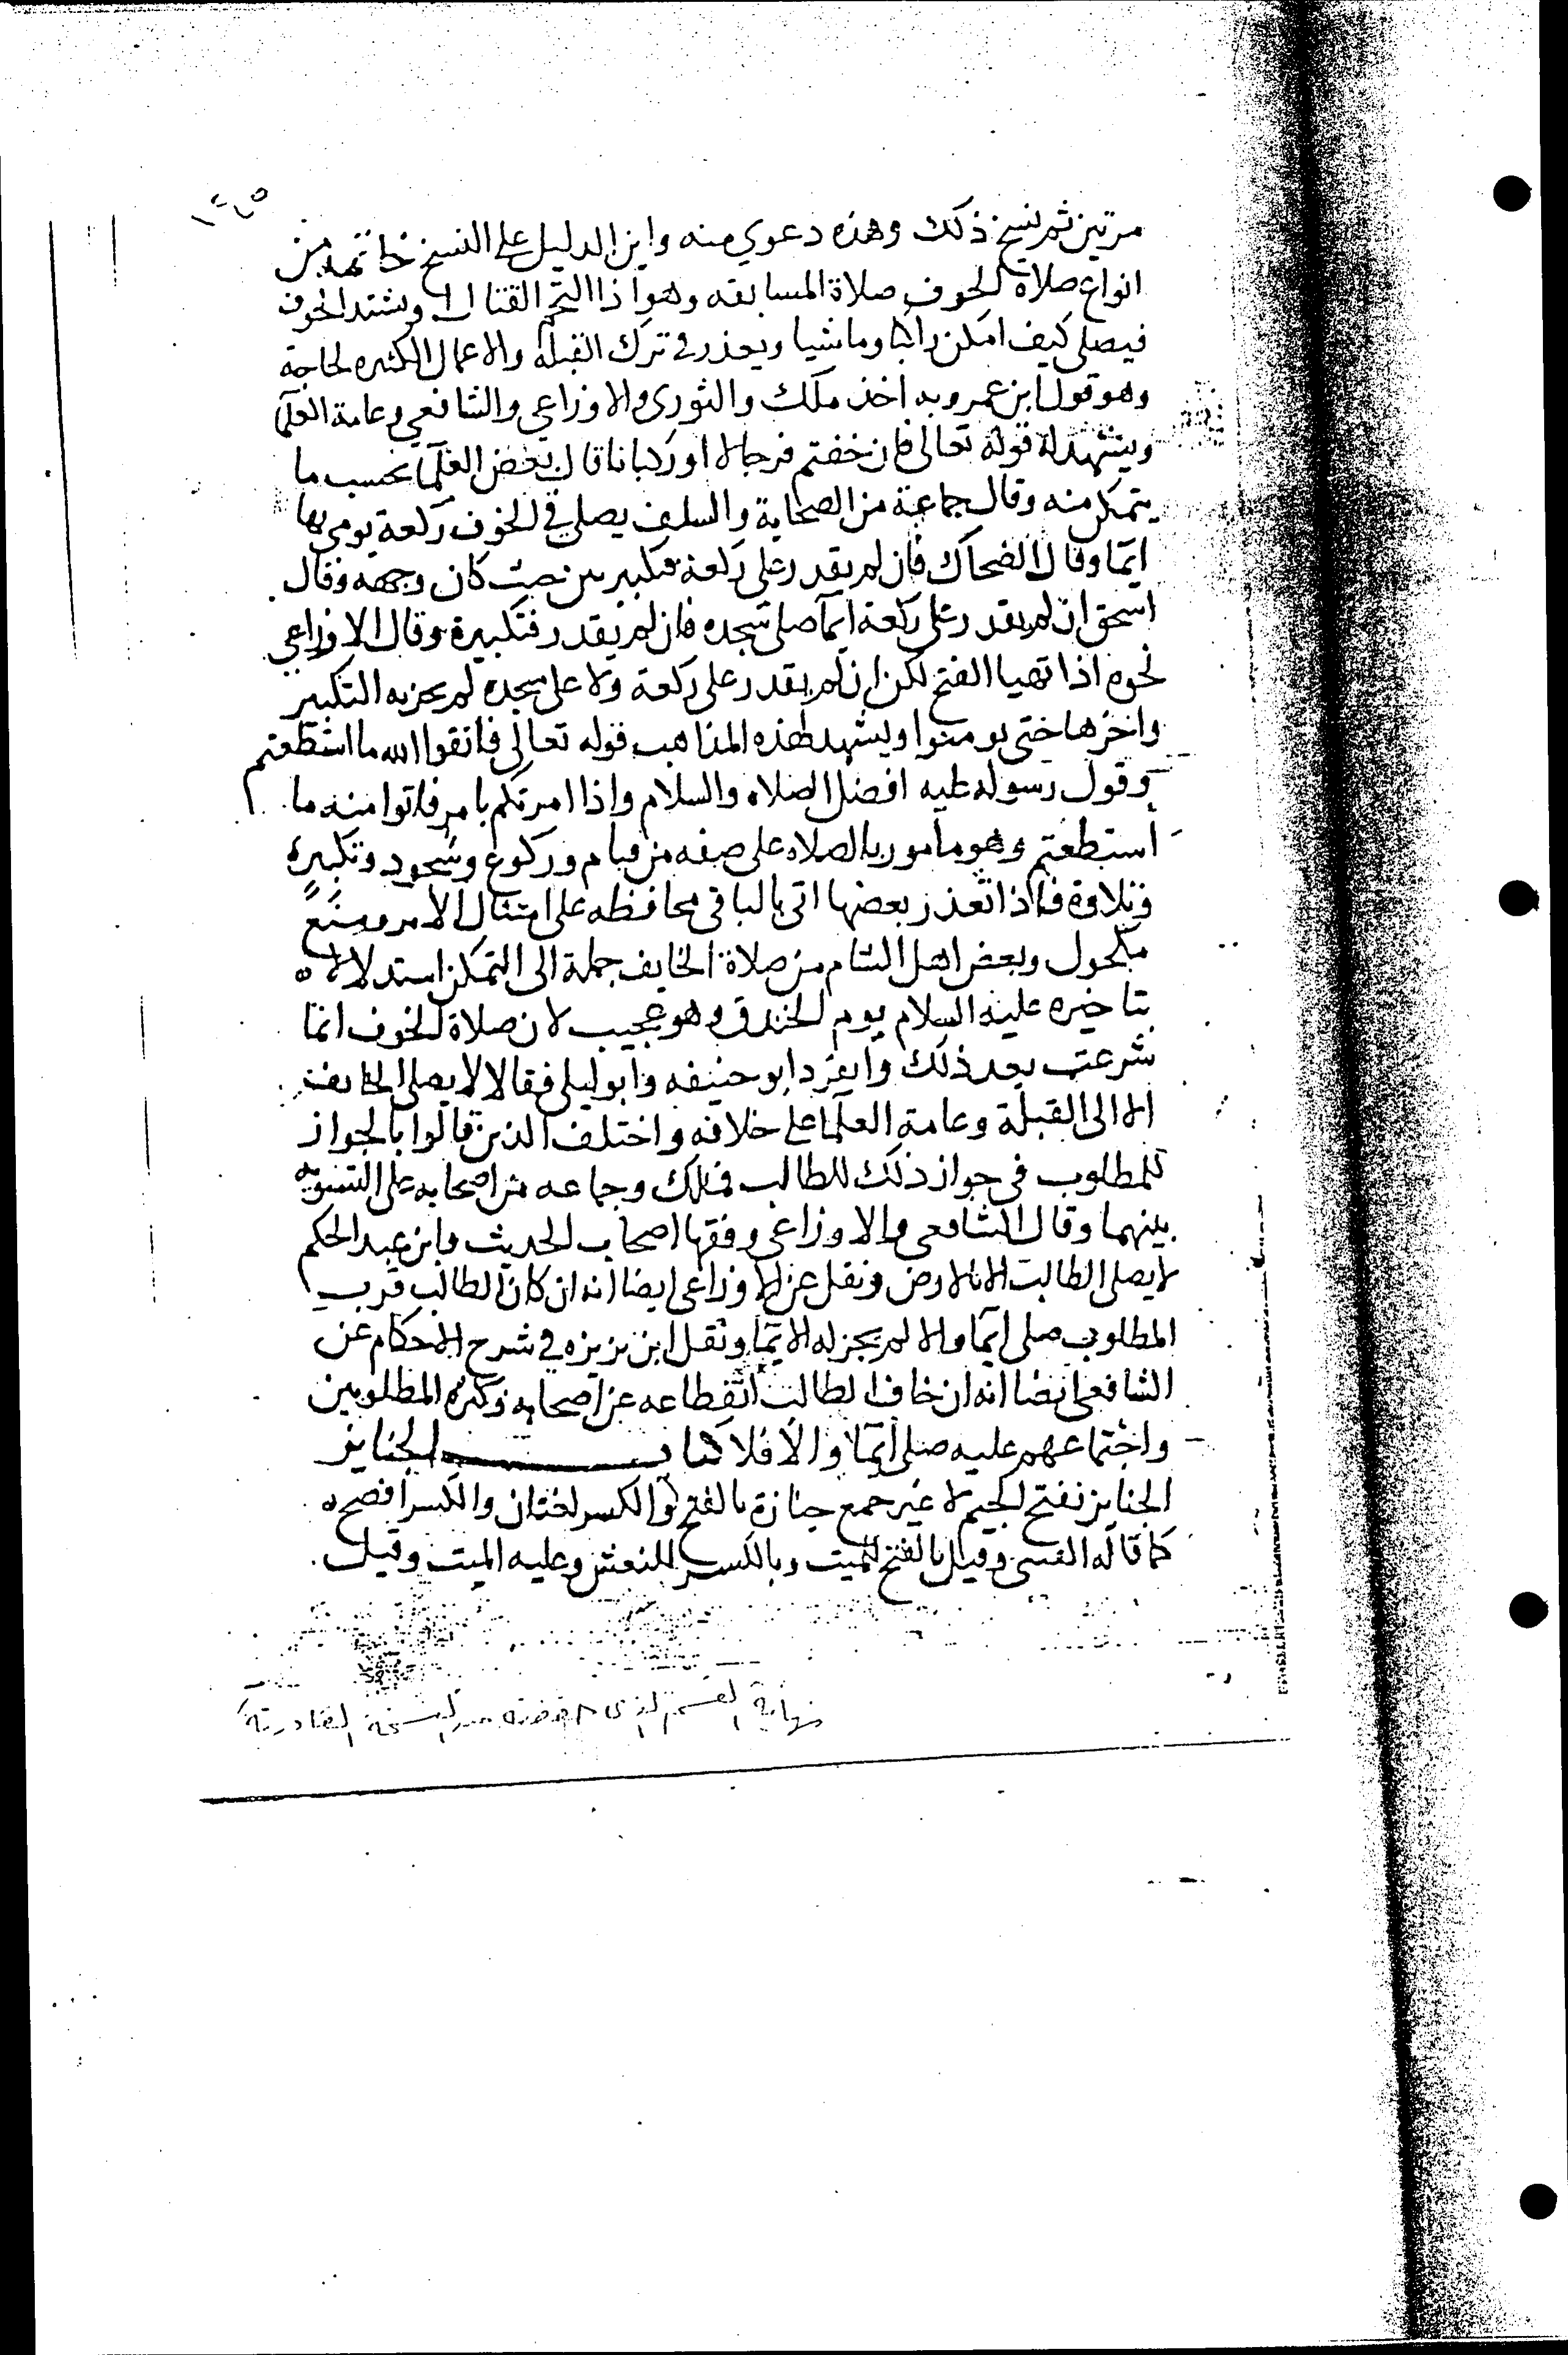 مرتين ثم نسخ ذلك وهذه دعوي منه واين الدليل على النسخ خاتمه من
انواع صلاة الخوف صلاة المسابقه وهو اذا التحم القتال ويشتد الخوف
فيصلى كيف امكن راكبا وماشيا ويعذر في ترك القبلة والاعمال الكثيره لحاجة
وهو قول ابن عمر وبه اخذ ملك والثورى والاوزاعي والشافعي وعامة العلما
ويشهد له قوله تعالى فان خفتم فرجالا او ركبانا قال بعض العلما بحسب ما
يتمكن منه وقال جماعة من الصحابة والسلف يصلي في الخوف ركعة يومي بها
ايما وقال الضحاك فان لم يقدر على ركعة فتكبيرتين حيث كان وجهه وقال
اسحق ان لم يقدر على ركعة ايما صلى سجده فان لم يقدر فتكبيرة وقال الاوزاعي
نحوه اذا تهيا الفتح لكن ان لم يقدر على ركعة ولا على سجده لم يجزيه التكبير
واخرها حتى يومنوا ويشهد لهذه المذاهب قوله تعالى فاتقوا الله ما استطعتم
وقول رسوله عليه افضل الصلاه والسلام واذا امرتكم بامر فاتوا منه ما
استطعتم وهو مامور بالصلاه على صفه من قيام وركوع وسجود وتكبيرة
وتلاوة فاذا تعذر بعضها اتى بالباقي محافظه على امتثال الامر ومنع
مكحول وبعض اهل الشام من صلاة الخايف جملة الى التمكن استدلالا
بتاخيره عليه السلام يوم الخندق وهو عجيب لان صلاة الخوف انما
شرعت بعد ذلك وانفرد ابو حنيفه وابو ليلى فقالا لا يصلى الخايف
الا الى القبلة وعامة العلما على خلافه واختلف الذين قالوا بالجواز
للمطلوب في جواز ذلك للطالب فملك وجماعه من اصحابه على التسويه
بينهما وقال الشافعي والاوزاعي وفقها اصحاب الحديث وابن عبد الحكم
لا يصلى الطالب الا بالارض ونقل عن الاوزاعي ايضا انه ان كان الطالب قرب
المطلوب صلى ايما والا لم يجز له الايما ونقل ابن بزيزه في شرح الاحكام عن
الشافعي ايضا انه ان خاف الطالب انقطاعه عن اصحابه وكثره المطلوبين
واجتماعهم عليه صلى ايما والا فلا كتاب الجنايز
الجنايز بفتح الجيم لا غير جمع جنازة بالفتح والكسر لغتان والكسر افصح
كما قاله وقيل بالفتح للميت وبالكسر للنعش وعليه الميت وقيل
نهاية القسم الذي من النسخة القادرية